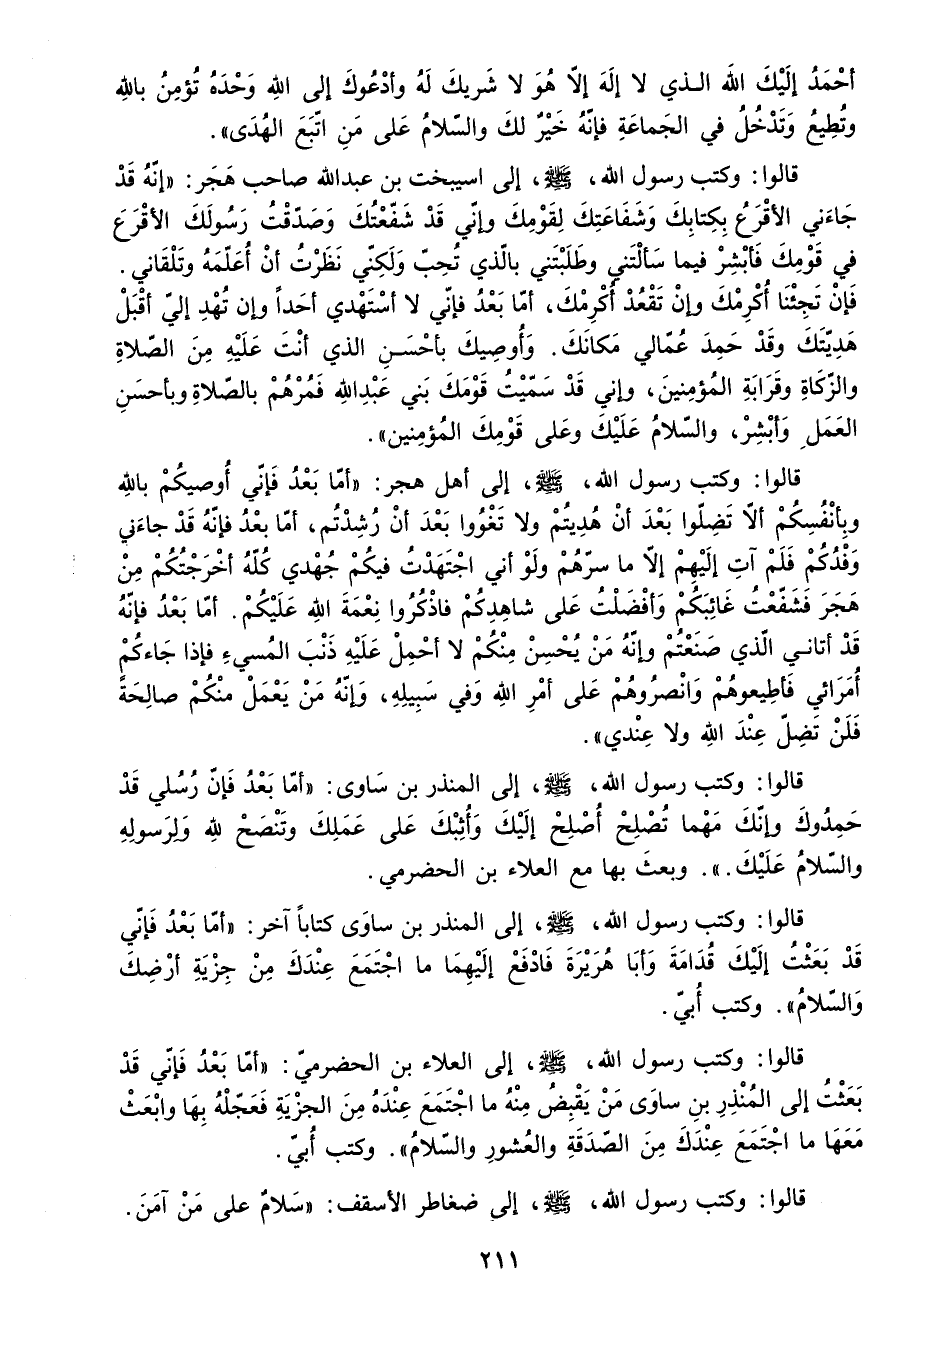 أحْمَدُ إلَيْكَ اللهَ الـذي لا إلَهَ إلّا هُوَ لا شَريكَ لَهُ وأدْعُوكَ إلى اللهِ وَحْدَهُ تُؤمِنُ باللهِ
وتُطِيعُ وَتَدْخُلُ في الجَماعَةِ فإنّهُ خَيْرٌ لكَ والسّلامُ عَلى مَنِ اتّبَعَ الهُدَى».
قالوا: وكتب رسول الله، ﷺ، إلى اسيبخت بن عبدالله صاحب هَجَر: «إنّهُ قَدْ
جَاءَني الأقْرَعُ بِكتابِكَ وَشَفَاعَتِكَ لِقَوْمِكَ وإنّي قَدْ شَفّعْتُكَ وَصَدّقْتُ رَسُولَكَ الأقْرَعَ
في قَوْمِكَ فَأبْشِرْ فيما سَألْتَني وطَلَبْتَني بالّذي تُحِبّ وَلَكِنّي نَظَرْتُ أنْ أُعَلّمَهُ وتَلْقَاني.
فَإنْ تَجِئْنَا أُكرِمْكَ وإنْ تَقْعُدْ أُكْرِمْكَ، أمّا بَعْدُ فإنّي لا أسْتَهْدي أحَداً وإن تُهْدِ إليّ أقْبَلْ
هَدِيّتَكَ وقَدْ حَمِدَ عُمّالي مَكانَكَ. وَأُوصِيكَ بأحْسَـنِ الذي أنْتَ عَلَيْهِ مِنَ الصّلاةِ
والزّكَاةِ وقَرَابَةِ المُؤمِنينَ، وإني قَدْ سَمّيْتُ قَوْمَكَ بَني عَبْدِالله فَمُرْهُمْ بالصّلاةِ وبأحسَنِ
العَمَلِ وَأبْشِرْ، والسّلامُ عَلَيْكَ وعَلى قَوْمِكَ المُؤمِنين».
قالوا: وكتب رسول الله، ﷺ، إلى أهل هجر: «أمّا بَعْدُ فَإنّي أُوصيكُمْ باللهِ
وبِأنْفُسِكُمْ ألاّ تَضِلّوا بَعْدَ أنْ هُدِيتُمْ ولا تَغْوُوا بَعْدَ أنْ رُشِدْتُم، أمّا بعْدُ فإنّهُ قَدْ جاءَني
وَفْدُكُمْ فَلَمْ آتِ إلَيْهِمْ إلّا ما سرّهُمْ ولَوْ أني اجْتَهَدْتُ فيكُمْ جُهْدي كلّهُ أخْرَجْتُكُمْ مِنْ
هَجَرَ فَشَفّعْتُ غَائِبَكُمْ وَأفْضَلْتُ على شاهِدِكُمْ فاذْكُرُوا نِعْمَةَ اللهِ عَلَيْكُمْ. أمّا بَعْدُ فإنّهُ
قَدْ أتانـي الّذي صَنَعْتُمْ وإنّهُ مَنْ يُحْسِنْ مِنْكُمْ لا أحْمِلْ عَلَيْهِ ذَنْبَ المُسيءِ فإذا جَاءكُمْ
أُمَرَائي فَأطِيعوهُمْ وَانْصرُوهُمْ عَلى أمْرِ اللهِ وَفي سَبِيلِهِ، وَإنّهُ مَنْ يَعْمَلْ منْكُمْ صالِحَةً
فَلَنْ تَضِلّ عِنْدَ اللهِ ولا عِنْدي».
قالوا: وكتب رسول الله، ﷺ، إلى المنذر بن سَاوى: «أمّا بَعْدُ فَإنّ رُسُلي قَدْ
حَمِدُوكَ وإنّكَ مَهْما تُصْلِحْ أُصْلِحْ إلَيْكَ وَأُثِبْكَ عَلى عَمَلِكَ وتَنْصَحْ للهِ وَلِرَسولِهِ
والسّلامُ عَلَيْكَ.». وبعثَ بها مع العلاء بن الحضرمي.
قالوا: وكتب رسول الله، ﷺ، إلى المنذر بن ساوَى كتاباً آخر: «أمّا بَعْدُ فَإنّي
قَدْ بَعَثْتُ إلَيْكَ قُدَامَةَ وَأبَا هُرَيْرَةَ فَادْفَعْ إلَيْهِمَا ما اجْتَمَعَ عِنْدَكَ مِنْ جِزْيَةِ أرْضِكَ
وَالسّلامُ». وكتب أُبيّ.
قالوا: وكتب رسول الله، ﷺ، إلى العلاء بن الحضرميّ: «أمّا بَعْدُ فَإنّي قَدْ
بَعَثْتُ إلى المُنْذِرِ بنِ ساوَى مَنْ يَقْبِضُ مِنْهُ ما اجْتَمَعَ عِنْدَهُ مِنَ الجِزْيَةِ فَعَجّلْهُ بِهَا وابْعَثْ
مَعَهَا ما اجْتَمَعَ عِنْدَكَ مِنَ الصّدَقَةِ والعُشورِ والسّلامُ». وكتب أُبيّ.
قالوا: وكتب رسول الله، ﷺ، إلى ضغاطر الأسقف: «سَلامٌ على مَنْ آمَنَ.
٢١١